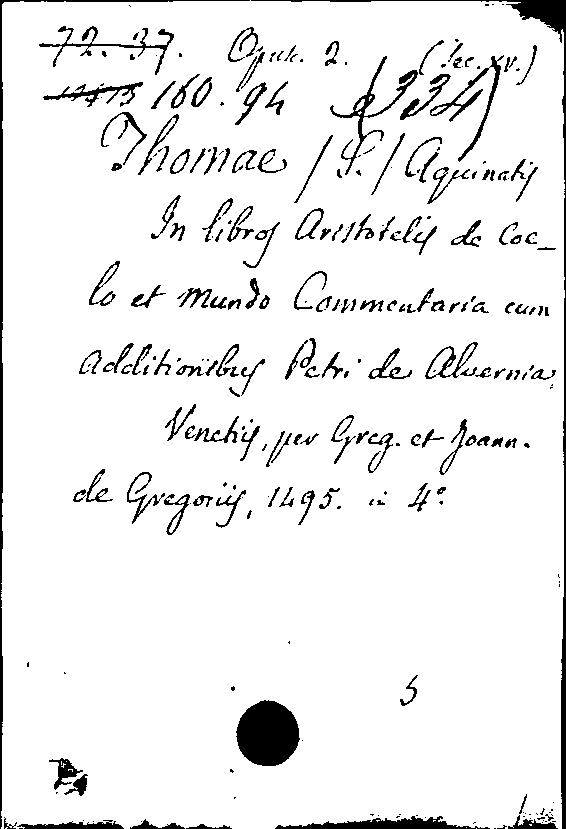 72. 37. Opusc. 2. (Sec. XV.)
160. 94 (334)
Thomae /S./ Aquinatis
In libros Aristotelis de Coe-
lo et Mundo Commentaria cum
additionibus Petri de Alvernia.
Venetiis, per Greg. et Joann.
de Gregoriis, 1495. in 4°.
5